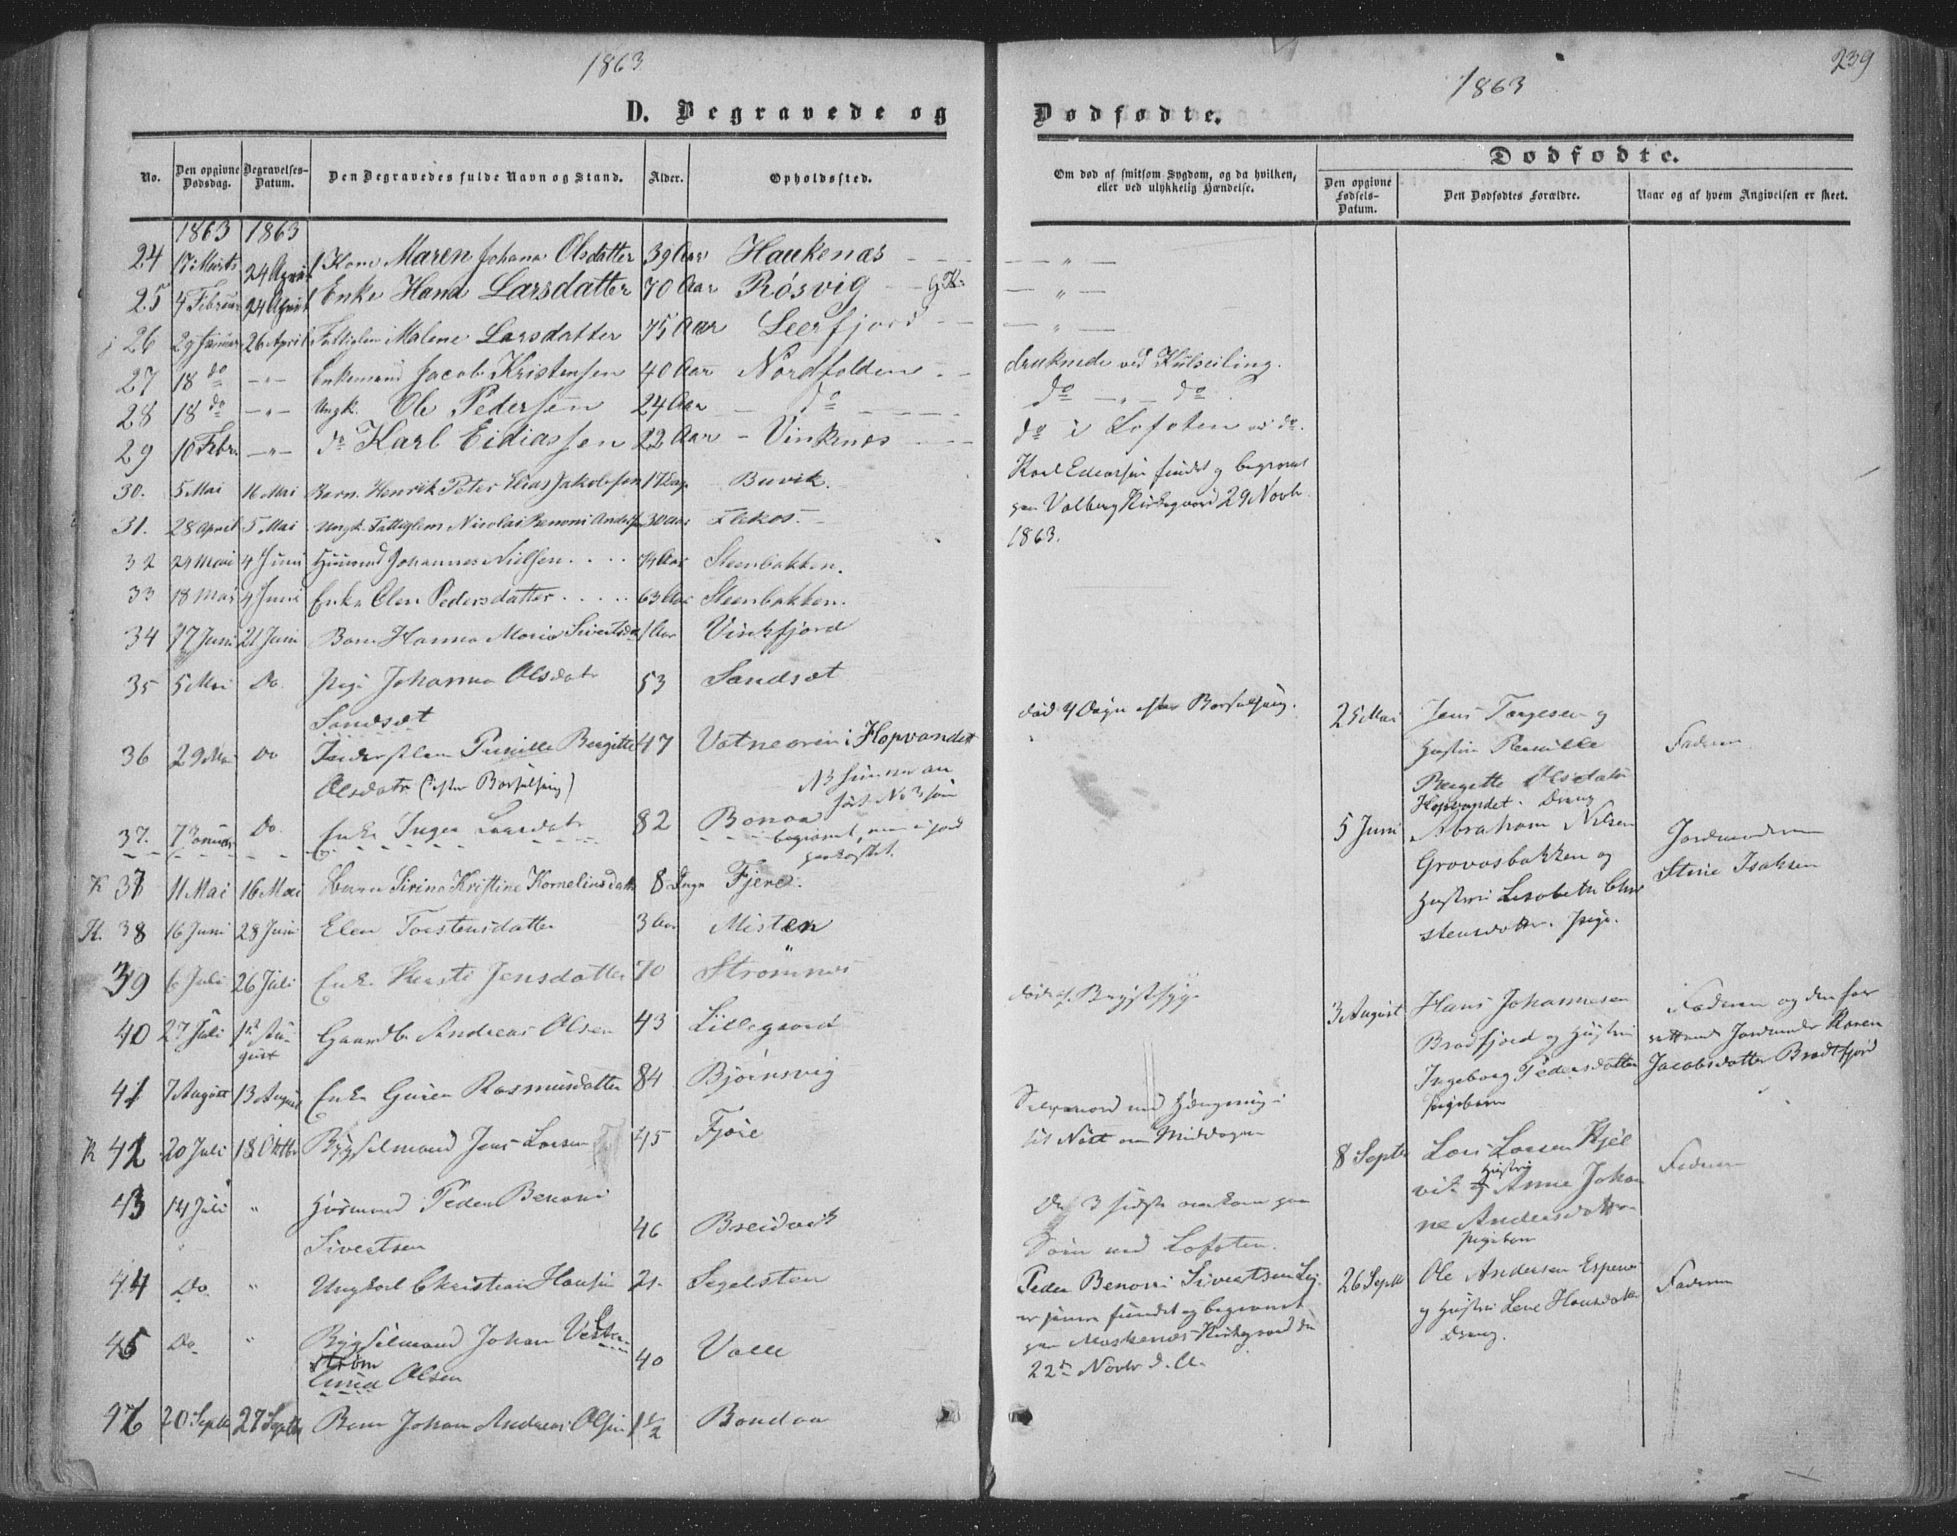 1863
D. Begravede og
No. Den opgivne Dødsdag. Begravelses-Datum. Den Begravedes fulde Navn og Stand. Alder. Opholdssted.
1863 1863
24 17 Marts 24 April Kone Maren Johana Olsdatter 39 Aar Haukenæs
25 4 Februar 24 April Enke Hana Larsdatter 70 Aar Røsvig
26 29 Januar 26 April Fattiglem Malene Larsdatter 75 Aar Leerfjord
27 18 do — " — Enkemand Jacob Kristensen 40 Aar Nordfolden
28 18 do — " — Ungk. Ole Pedersen 24 Aar do
29 10 Febr. — " — do Karl Eidiassen 22 Aar Vinkenes
30. 5 Mai 16 Mai Barn Henrik Peter Elias Jakobsen Buvik.
31. 28 April 5 Mai Ungk. Fattiglem Nicolai Benoni 30 Aar
32 4 Juni Huusmand Johannes Nielsen Steenbakken.
33 18 Mai 4 Juni Enke Olen Pedersdatter 63 Aar Steenbakken.
34 17 Juni 21 Juni Barn Hanna Maria 1 Aar Vinkfjord
35 5 Mai Do. Pige Johanna Olsdatr 53 Sandsæt
Sandsæt
36 29 Mai Do Pernille Bergitte 47 Vatneøren i Hopvandet
Olsdatr (efter Barselseng)
37. 7 Januar Do. Enke Inger Larsdatr 82 Bonaa
K 37 11 Mai 16 Mai Barn Sirina Kristine Korneliusdatter 8 Dage Fjære.
K. 38 16 Juni 28 Juni Elen Torstensdatter 3 Aar Misten
39 6 Juli 26 Juli Enke Jensdatter 70 Strømnes
40 27 Juli 1st August Gaardb. Andreas Olsen 43 Lillegaard
41 7 August 13 August Enke Guren Rasmusdatter 84 Bjørnsvig
K 42 20 Juli 18 Oktbr Bygselmand Jens Larsen 45 Fjære
43 14 Juli " Husmand Peder Benoni
Sivertsen 46 Breidvik
44 Do. " Ungkarl Christian Hansen 21. Segelsten
45 Do " Bygselmand Johan
Olsen 40 Valle
46 20 Septb 27 Septb Barn Johan Andreas Olsen 1 1/2 Bondaa
1863
239
Dødfødte.
Om død af smitsom Sygdom, og da hvilken, eller ved ulykkelig Hændelse.
Dødfødte.
Den opgivne Fødsels-Datum. Den Dødfødtes Forældre. Naar og af hvem Angivelsen er skeet.
— " —
— " —
— " —
druknede ved Kulseiling.
do — " — do
do i Lofoten ved do.
fundet og begravet
paa Valberg Kirkegaard 29 Novbr
1863.
død 4 Dage efter Barselseng.
25 Mai Jens Torgesen og
Hustru Pernille Faderen
Bergette Olsdatter
Hopvandet. Dreng
5 Juni Abraham Nilsen Jordemoderen
Grovasbakken og Stine Isaksen
Hustru Lisabeth Chri
stensdatter. Pige.
død af Brystsyge
3 August Hans Johannesen Faderen og den for
Bradfjord og Hustru
Ingeborg Pedersdatter Jacobsdatter Bradtfjord
Pigebarn
Selvmord ved Hængning i
8 Septbr Lars Larsen Kjel
vik og Hustru Anne Joha Faderen
ne Andersdatter
Pigebarn
De 3 sidste omkom paa
Søen ved Lofoten.
Peder Benoni Sivertsen Lig
er senere fundet og begravet
paa Moskenæs Kirkegaard den
22de Novbr d. A.
26 Septb Ole Andersen Espenes
og Hustru Lene Hansdatter Faderen
Dreng.